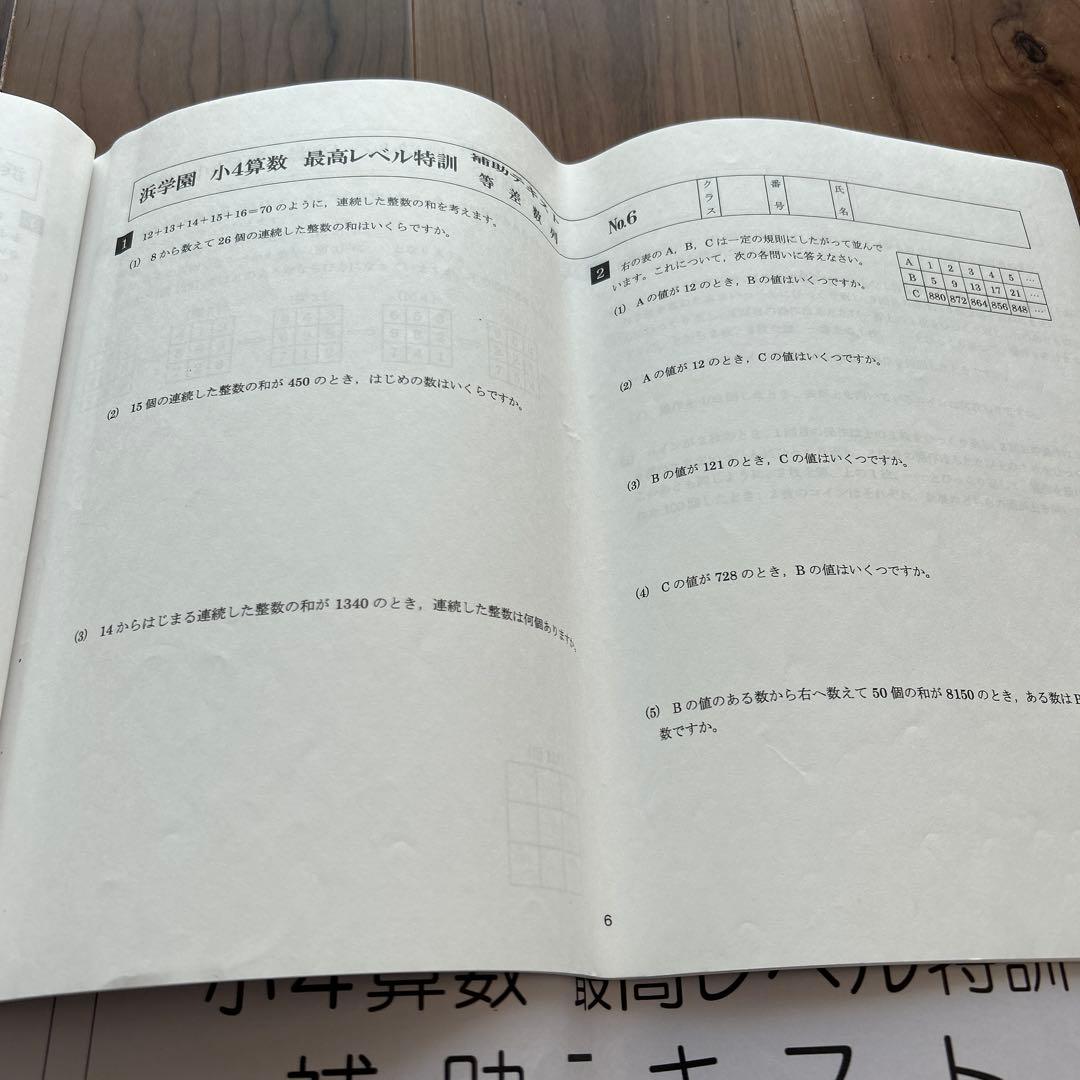 浜学園 小4算数 最高レベル特訓 補助テキスト 等差数列 No.6
クラス 番号 氏名
1 12+13+14+15+16=70のように，連続した整数の和を考えます。
(1) 8から数えて26個の連続した整数の和はいくらですか。
(2) 15個の連続した整数の和が450のとき，はじめの数はいくらですか。
(3) 14からはじまる連続した整数の和が1340のとき，連続した整数は何個ありますか。
2 右の表のA，B，Cは一定の規則にしたがって並んで
います。これについて，次の各問いに答えなさい。
A 1 2 3 4 5 …
B 5 9 13 17 21 …
C 880 872 864 856 848 …
(1) Aの値が12のとき，Bの値はいくつですか。
(2) Aの値が12のとき，Cの値はいくつですか。
(3) Bの値が121のとき，Cの値はいくつですか。
(4) Cの値が728のとき，Bの値はいくつですか。
(5) Bの値のある数から右へ数えて50個の和が8150のとき，ある数はB
数ですか。
6
小4算数 最高レベル特訓
補助テキスト